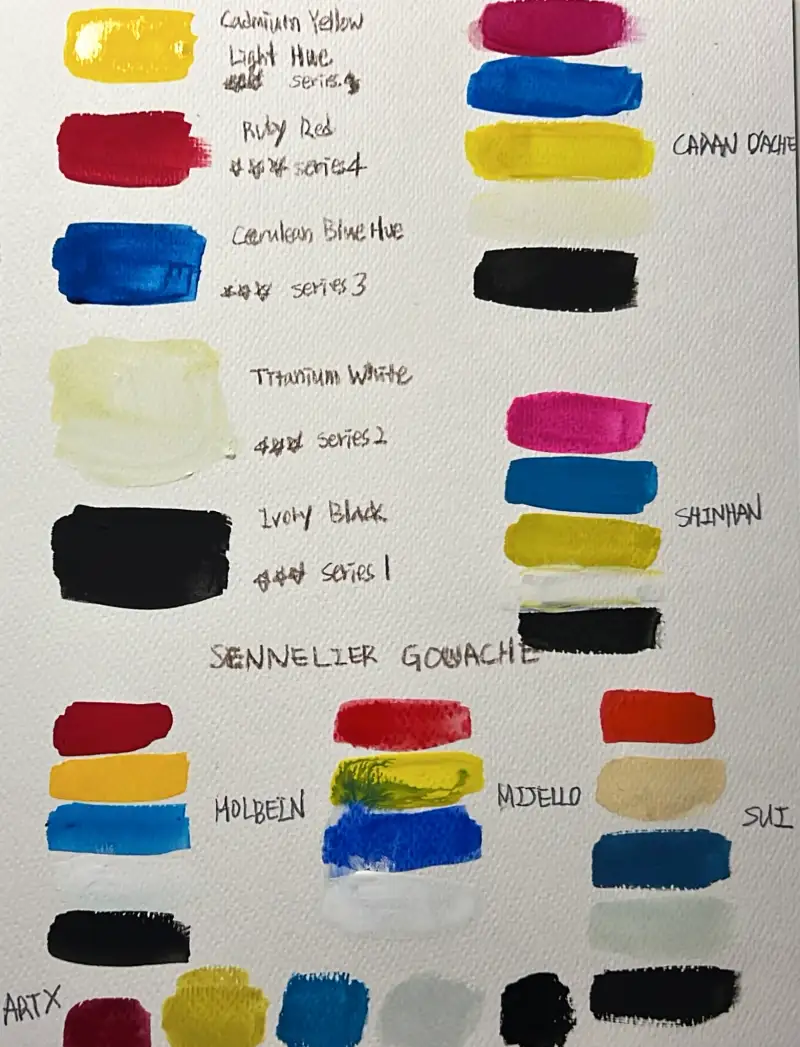 Cadmium Yellow
Light Hue
*** series.4
Ruby Red
*** series4
Cerulean Blue Hue
*** series 3
Titanium White
*** series 2
Ivory Black
*** series 1
SENNELIER GOUACHE
CARAN D'ACHE
SHINHAN
HOLBEIN
MIJELLO
SUI
ARTX